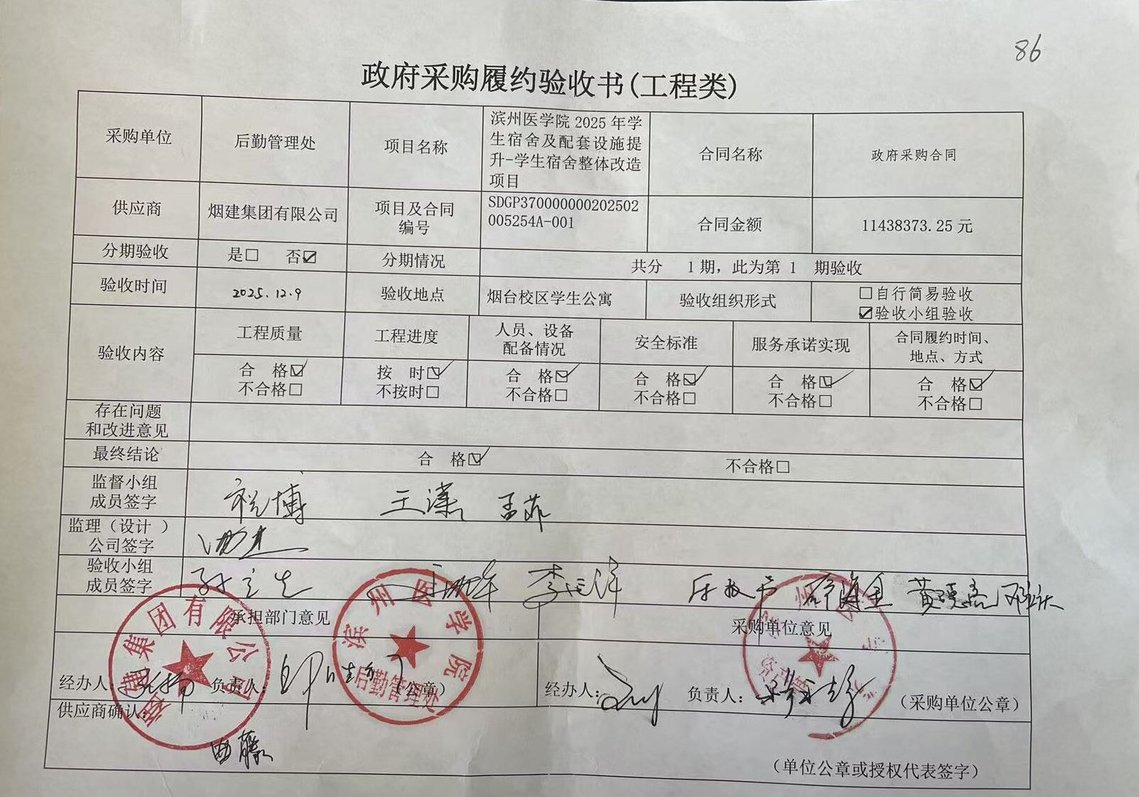 86
政府采购履约验收书(工程类)
采购单位 后勤管理处 项目名称 滨州医学院 2025 年学
生宿舍及配套设施提
升-学生宿舍整体改造
项目 合同名称 政府采购合同
供应商 烟建集团有限公司 项目及合同
编号 SDGP370000000202502
005254A-001 合同金额 11438373.25 元
分期验收 是□ 否☑ 分期情况 共分 1 期，此为第 1 期验收
验收时间 2025.12.9 验收地点 烟台校区学生公寓 验收组织形式 □自行简易验收
☑验收小组验收
验收内容 工程质量 工程进度 人员、设备
配备情况 安全标准 服务承诺实现 合同履约时间、
地点、方式
合 格☑ 按 时☑ 合 格☑ 合 格☑ 合 格☑ 合 格☑
不合格□ 不按时□ 不合格□ 不合格□ 不合格□ 不合格□
存在问题
和改进意见
最终结论 合 格☑ 不合格□
监督小组
成员签字 王潇
监理（设计 ）
公司签字
验收小组
成员签字
承担部门意见 采购单位意见
经办人 负责人： （公章） 经办人： 负责人： （采购单位公章）
供应商确认：
（单位公章或授权代表签字）
集团有限公司
滨州医学院
后勤管理处